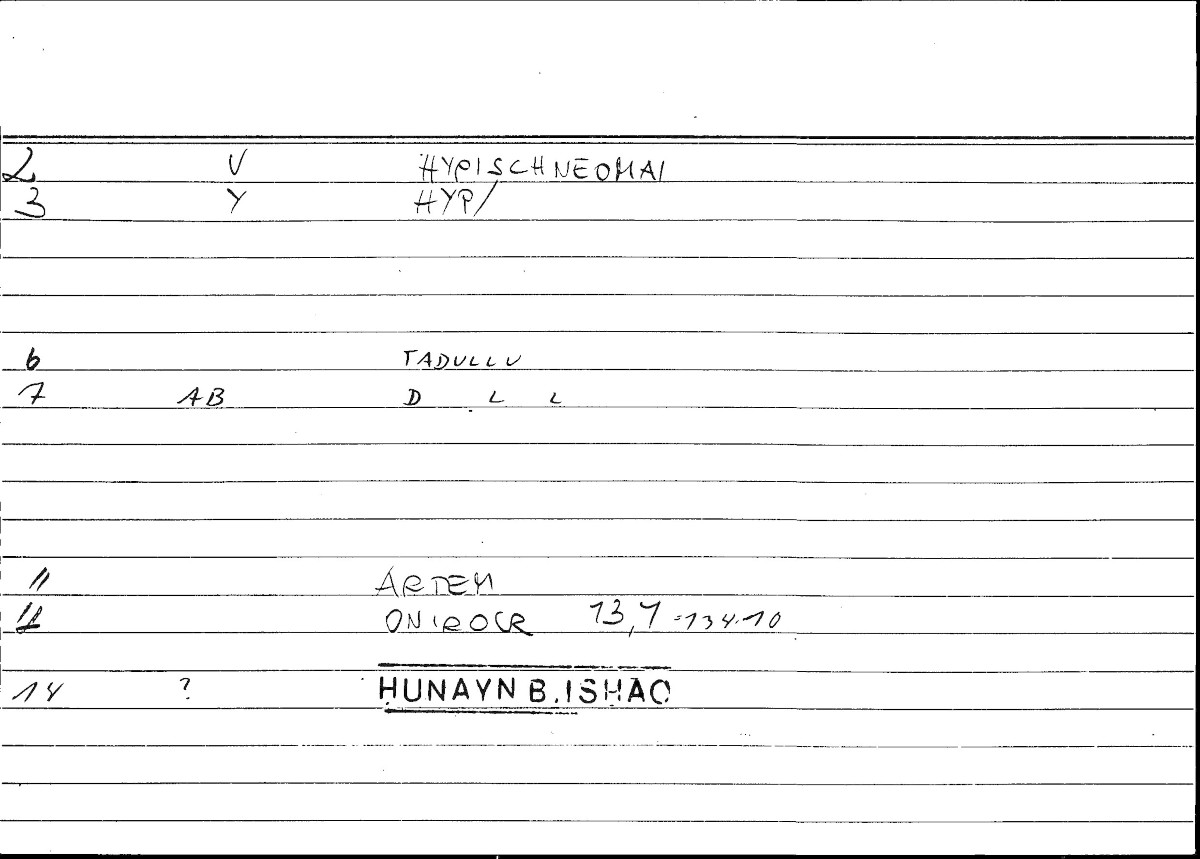 2 V HYPISCHNEOMAI
3 Y HYP/
6 TADULLU
7 AB D L L
11 ARTEM
12 ONIROCR 13,7 =134.10
14 ? HUNAYN B. ISHAQ